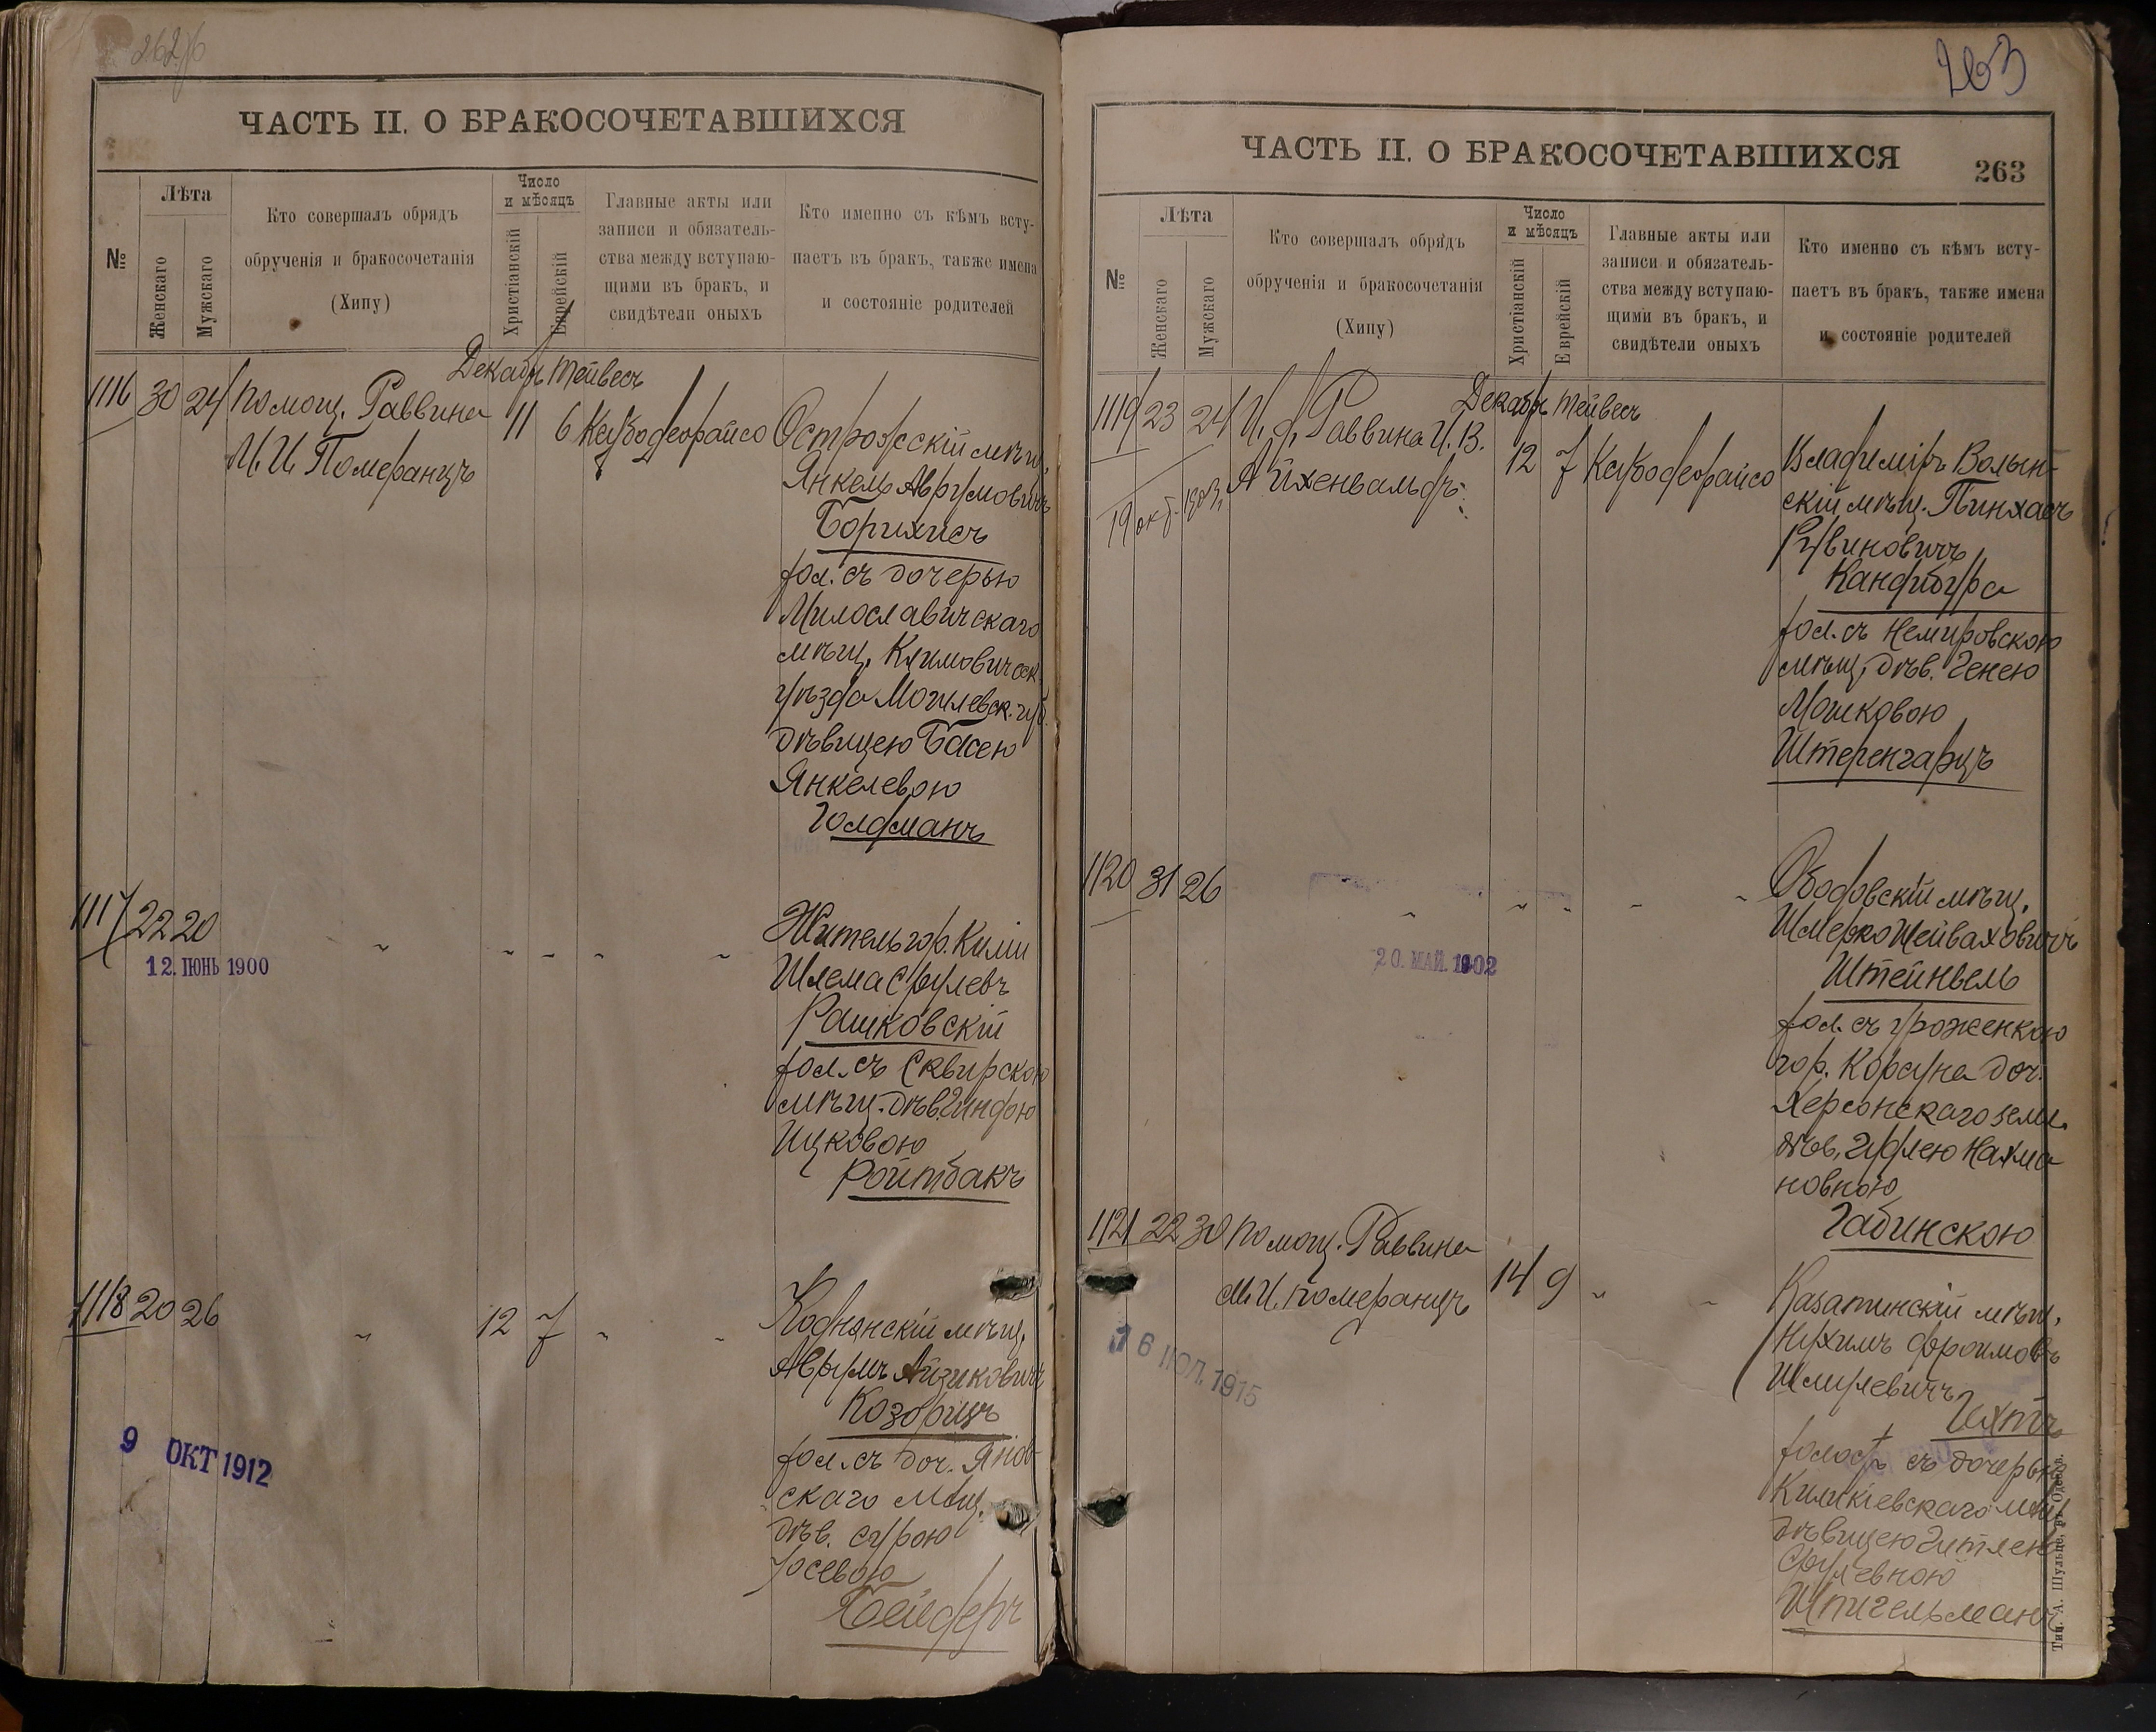 263
ЧАСТЬ II. О БРАКОСОЧЕТАВШИХСЯ
№
Лѣта
Женскаго
Мужскаго
Кто совершалъ обрядъ
обрученія и бракосочетанія
(Хипу)
Число
и мѣсяцъ
Христіанскій
Еврейскій
Главные акты или
записи и обязатель-
ства между вступаю-
щими въ бракъ, и
свидѣтели оныхъ
Кто именно съ кѣмъ всту-
паетъ въ бракъ, также имена
и состояніе родителей
Декабрь Тейвесъ
1116 30 24 Помощ. Раввина
М. И. Померанцъ
11 6
Острожскій мѣщ.
Янкель Аврумовичъ
Борихисъ
хол. съ дочерью
Милославичскаго
мѣщ. Климовическ.
уѣзда Могилевск. губ.
дѣвицею Басею
Янкелевою
Голдманъ
1117 22 20 " " " " "
12. ІЮНЬ 1900
Житель гор. Киліи
Шлема Срулевъ
Рашковскій
хол. съ Сквирскою
мѣщ. дѣв. Гиндою
Ицковою
Ройтбакъ
1118 20 26 " 12 7 " "
9 ОКТ 1912
Коднянскій мѣщ.
Аврумъ Айзиковичъ
Козорицъ
хол. съ доч. Янов-
скаго мѣщ.
дѣв. Сурою
Іосевою
ЧАСТЬ II. О БРАКОСОЧЕТАВШИХСЯ
263
№
Лѣта
Женскаго
Мужскаго
Кто совершалъ обрядъ
обрученія и бракосочетанія
(Хипу)
Число
и мѣсяцъ
Христіанскій
Еврейскій
Главные акты или
записи и обязатель-
ства между вступаю-
щими въ бракъ, и
свидѣтели оныхъ
Кто именно съ кѣмъ всту-
паетъ въ бракъ, также имена
и состояніе родителей
Декабрь Тейвесъ
1119 23 24 И. д. Раввина И. В.
Айхенвальдъ
19 окт. 1903
12 7
Владиміръ Волын-
скій мѣщ. Пинхасъ
Рувиновичъ
Кандибура
хол. съ Немировскою
мѣщ. дѣв. Генею
Мошковою
Штеренгарцъ
1120 31 26 " " " " "
20. МАЙ. 1902
Ободовскій мѣщ.
Шмерко Шейваховичъ
Штейнвель
хол. съ уроженкою
гор. Корсуна доч.
Херсонскаго земл.
дѣв. Идлею Нахма
новною
Габинскою
1121 22 30 Помощ. Раввина
М. И. Померанцъ
14 9 " "
16 ІЮЛ. 1915
Казатинскій мѣщ.
Нухимъ Фроимовъ
Шмулевичъ
Гехтъ
холост. съ дочерью
Киликіевскаго мѣщ.
дѣвицею Гитлею
Срулевною
Шпигельманъ
Тип. А. Шульце, въ Одессѣ.